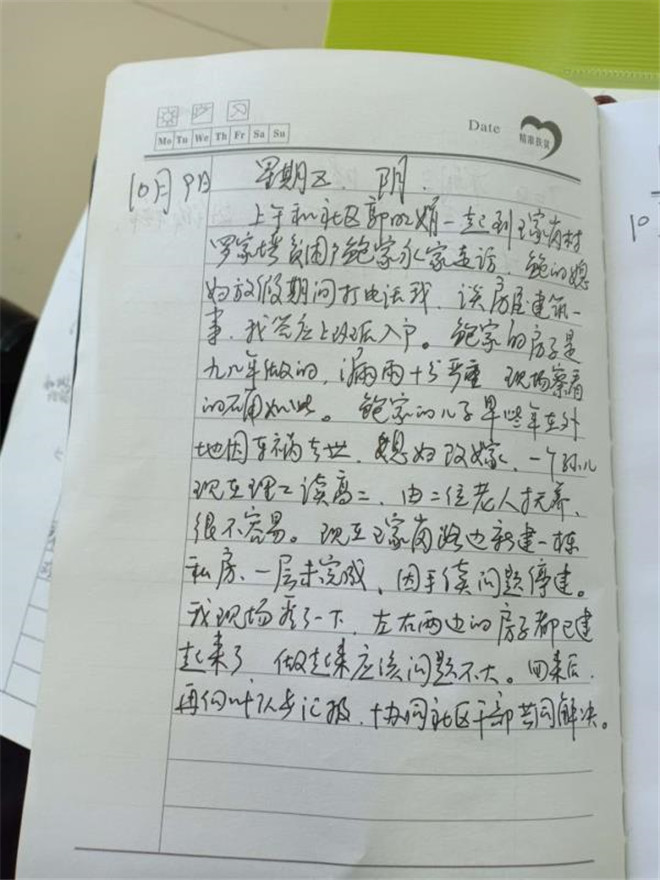 Mo Tu We Th Fr Sa Su
Date
精准扶贫
10月9日 星期五. 阴.
上午和社区郭 娟一起到 家岗村
罗家塆 困户鲍家永家走访. 鲍的媳
妇放假期间打电话我, 谈房屋建筑一
事, 我答应上班后入户。鲍家的房子是
九八年做的, 漏雨十分严重 现场察看
的确如此。鲍家的儿子早些年在外
地因车祸去世, 媳妇改嫁, 一个孙儿
现在理工读高二, 由二位老人抚养,
很不容易。现在 家岗路边新建一栋
私房、一层未完成、因手续问题停建。
我现场看了一下, 左右两边的房子都已建
起来了 做起来应该问题不大。回来后,
再向叶队长汇报, 协同社区干部共同解决。
10